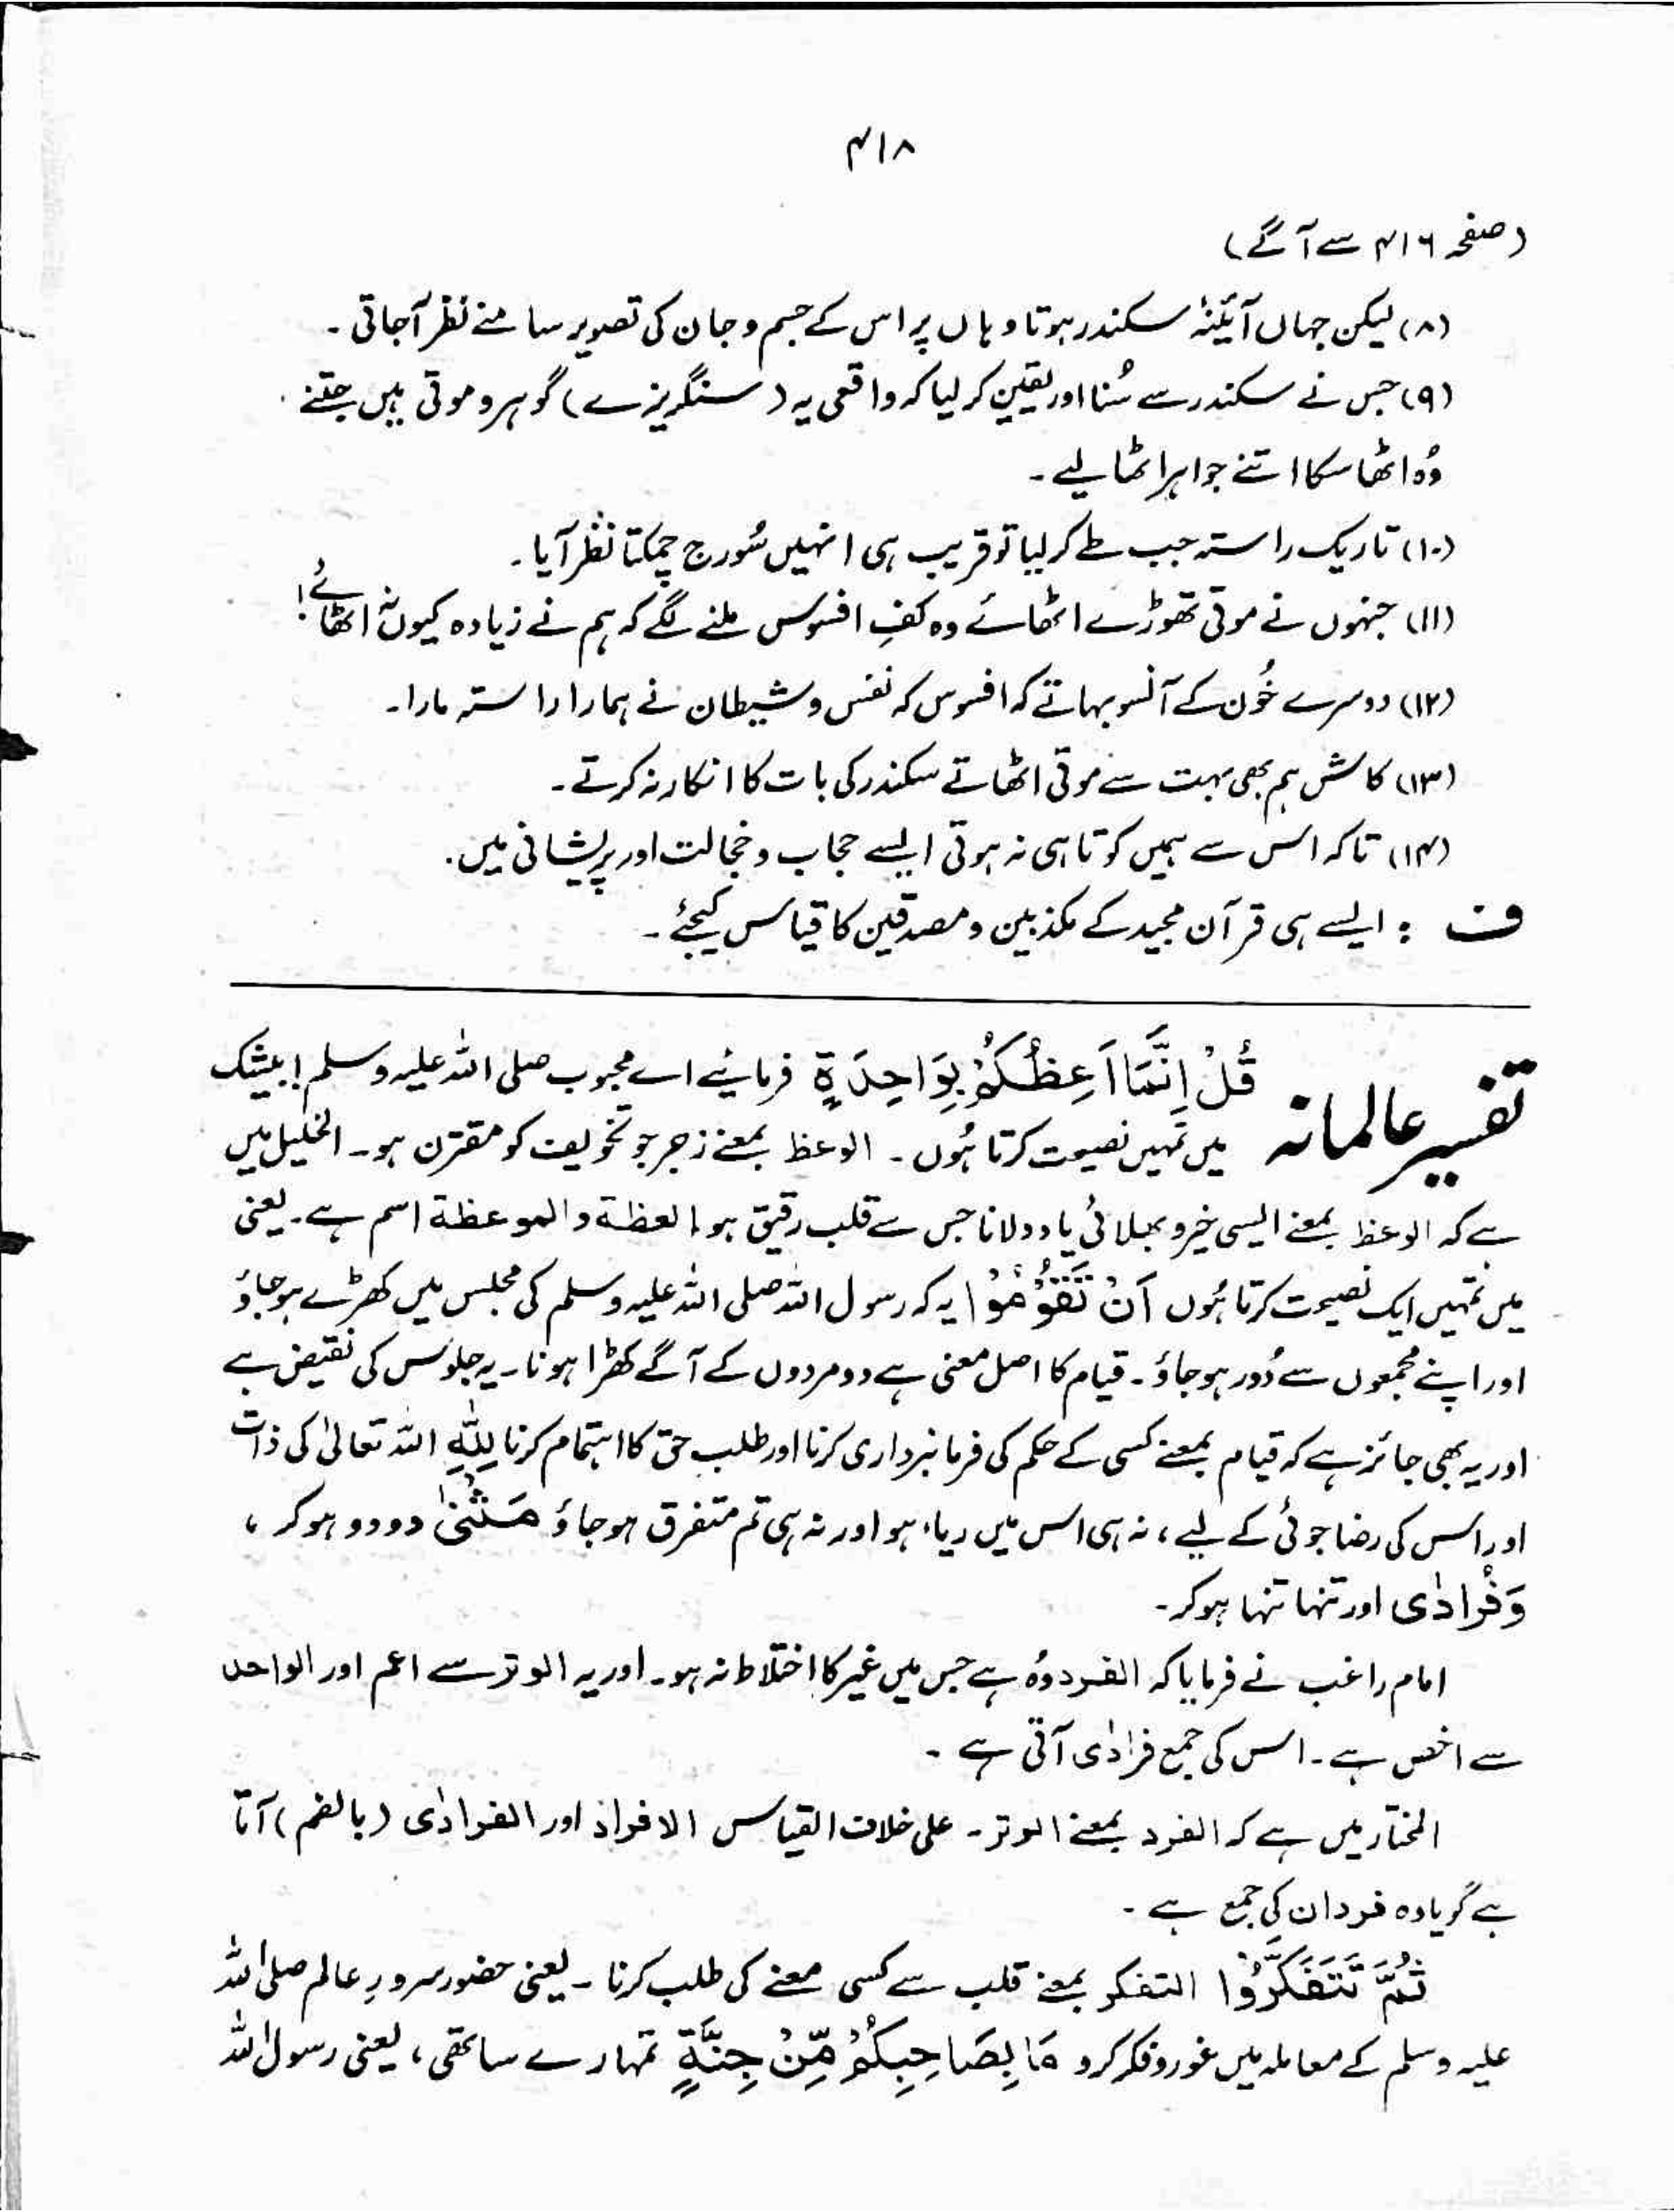 ۴۱۸
(صفحہ ۴۱۶ سے آگے)
(۸) لیکن جہاں آئینۂ سکندر ہوتا وہاں پر اس کے جسم و جان کی تصویر سامنے نظر آجاتی ۔
(۹) جس نے سکندر سے سُنا اور یقین کر لیا کہ واقعی یہ (سنگریزے) گوہر و موتی ہیں جتنے
وُہ اٹھا سکا اتنے جواہر اٹھا لیے ۔
(۱۰) تاریک راستہ جب طے کر لیا تو قریب ہی انہیں سُورج چمکتا نظر آیا ۔
(۱۱) جنہوں نے موتی تھوڑے اٹھائے وہ کفِ افسوس ملنے لگے کہ ہم نے زیادہ کیوں نہ اٹھائے!
(۱۲) دوسرے خُون کے آنسو بہاتے کہ افسوس کہ نفس و شیطان نے ہمارا راستہ مارا۔
(۱۳) کاش ہم بھی بہت سے موتی اٹھاتے سکندر کی بات کا انکار نہ کرتے ۔
(۱۴) تاکہ اس سے ہمیں کوتاہی نہ ہوتی ایسے حجاب و خجالت اور پریشانی میں ۔
ف : ایسے ہی قرآن مجید کے مکذبین و مصدقین کا قیاس کیجئے ۔
تفسیر عالمانہ قُلْ اِنَّمَا اَعِظُكُمْ بِوَاحِدَةٍ فرمائیے اے محبوب صلی اللہ علیہ وسلم ! بیشک
میں تمہیں نصیحت کرتا ہُوں ۔ الوعظ بمعنے زجر جو تخویف کو مقترن ہو ۔ الخلیل میں
ہے کہ الوعظ بمعنے ایسی خیر و بھلائی یاد دلانا جس سے قلب رقیق ہو العظة و الموعظة اسم ہے ۔ یعنی
میں تمہیں ایک نصیحت کرتا ہُوں اَنْ تَقُوْمُوْا یہ کہ رسول اللہ صلی اللہ علیہ وسلم کی مجلس میں کھڑے ہو جاؤ
اور اپنے مجمعوں سے دُور ہو جاؤ ۔ قیام کا اصل معنی ہے دو مردوں کے آگے کھڑا ہونا ۔ یہ جلوس کی نقیض ہے
اور یہ بھی جائز ہے کہ قیام بمعنے کسی کے حکم کی فرمانبرداری کرنا اور طلب حق کا اہتمام کرنا لِلّٰهِ اللہ تعالیٰ کی ذات
اور اس کی رضا جوئی کے لیے ، نہ ہی اس میں ریاء ہو اور نہ ہی تم متفرق ہو جاؤ مَثْنٰى دو دو ہو کر ،
وَفُرَادٰى اور تنہا تنہا ہو کر ۔
امام راغب نے فرمایا کہ الفرد وُہ ہے جس میں غیر کا اختلاط نہ ہو ۔ اور یہ الوتر سے اعم اور الواحد
سے اخص ہے ۔ اس کی جمع فرادٰی آتی ہے ۔
المختار میں ہے کہ الفرد بمعنے الوتر ۔ علی خلاف القیاس الافراد اور الفرادٰی (بالضم) آتا
ہے گویا وہ فردان کی جمع ہے ۔
ثُمَّ تَتَفَكَّرُوْا التفکر بمعنے قلب سے کسی معنے کی طلب کرنا ۔ یعنی حضور سرورِ عالم صلی اللہ
علیہ وسلم کے معاملہ میں غور و فکر کرو مَا بِصَاحِبِكُمْ مِّنْ جِنَّةٍ تمہارے ساتھی ، یعنی رسول اللہ